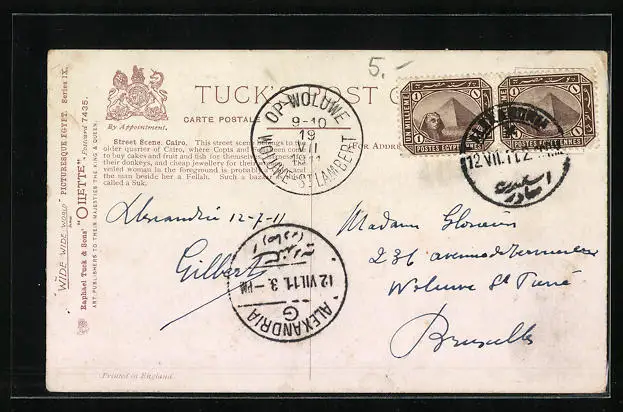 5.-
TUCK'S POST C
CARTE POSTALE
(FOR ADDRE
By Appointment.
Street Scene, Cairo. This street scene belongs to
older quarter of Cairo, where Copts and
to buy cakes and fruit and fish for themselves,
their donkeys, and cheap jewellery for the
veiled woman in the foreground is probably
the man beside her a Fellah. Such a bazaar
called a Suk.
WIDE WIDE WORLD PICTURESQUE EGYPT. Series IX.
Raphael Tuck & Sons' "OILETTE" Postcard 7435.
ART PUBLISHERS TO THEIR MAJESTIES THE KING & QUEEN.
WOLUWE ST LAMBERT
OP-WOLUWE
9-10
19
VII
1911
POSTES EGYPTIENNES
POSTES EGYPTIENNES
12.VII.11
Alexandria 12-7-11
Gilbert
ALEXANDRIA
G
12 VII.11. 3 - PM
Madame
236 avenue
Woluwe St
Bruxelles
Printed in England.